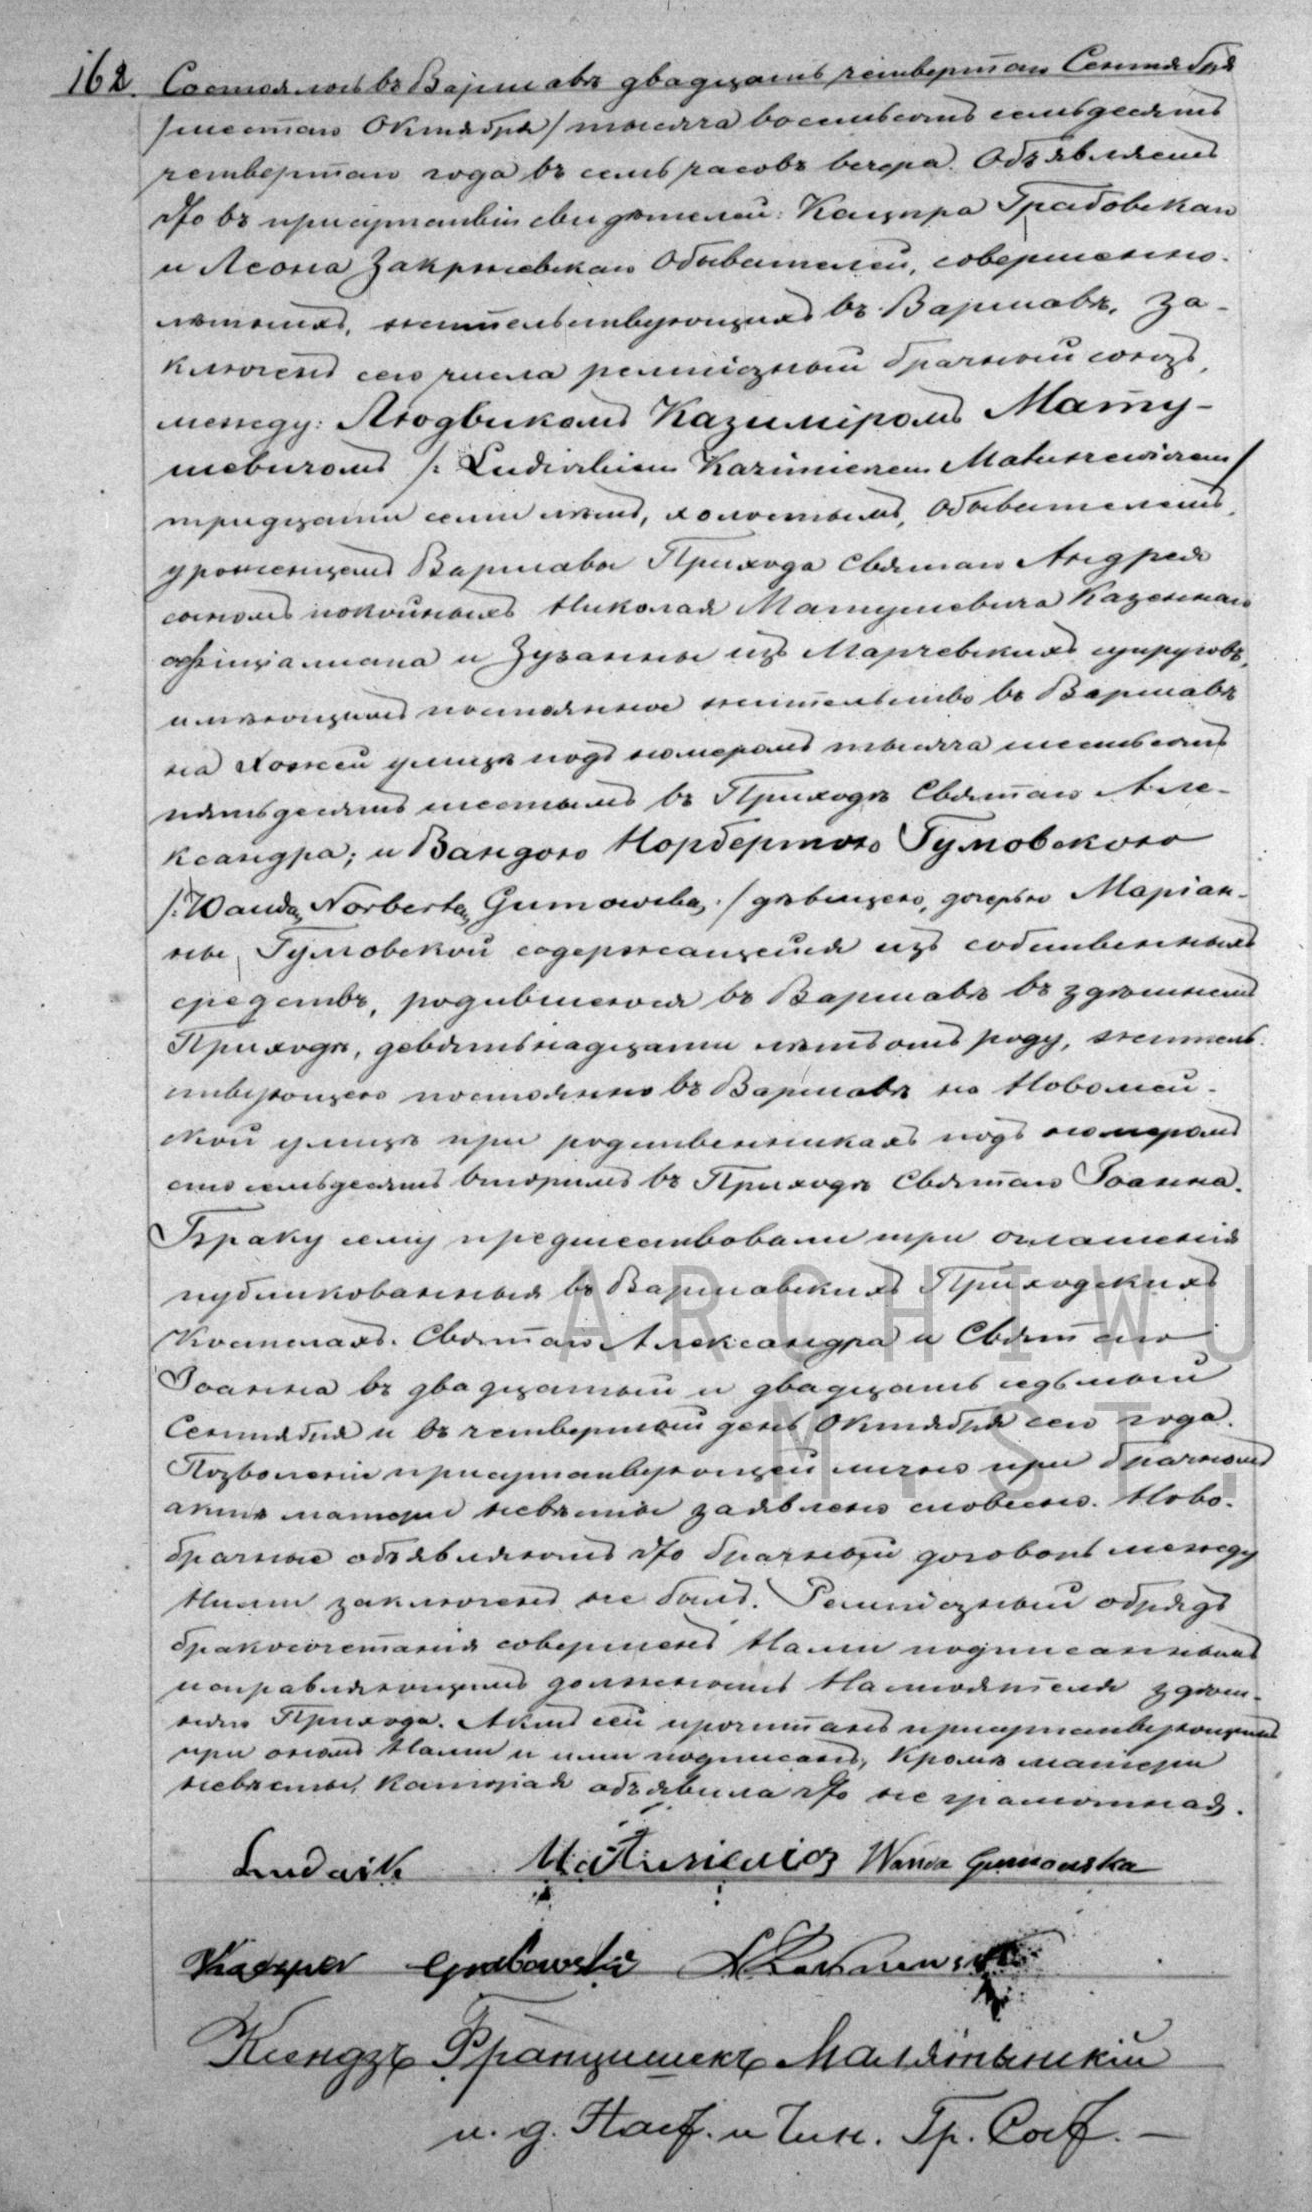 162. Состоялось въ Варшавѣ двадцать четвертаго Сентября
/шестаго Октября/ тысяча восемьсотъ семьдесятъ
четвертаго года въ семь часовъ вечера. Объявляемъ
что въ присутствіи свидѣтелей: Каспра Грабовскаго
и Леона Закржевскаго Обывателей, совершенно-
лѣтнихъ, жительствующихъ въ Варшавѣ, за-
ключенъ сего числа религіозный брачный союзъ,
между: Людвикомъ Казиміромъ Мату-
шевичомъ /: Ludwikiem Kazimierzem Matuszewiczem/
тридцати семи лѣтъ, холостымъ, Обывателемъ,
уроженцемъ Варшавы Прихода Святаго Андрея
сыномъ покойныхъ Николая Матушевича Казеннаго
оффиціалиста и Зузанны изъ Марчевскихъ супруговъ,
имѣющимъ постоянное жительство въ Варшавѣ
на Хожей улицѣ подъ номеромъ тысяча шестьсотъ
пятьдесятъ шестымъ въ Приходѣ Святаго Але-
ксандра; и Вандою Норбертою Гумовскою
/: Wandą Norbertą Gumowską :/ дѣвицею, дочерью Маріан-
ны Гумовской содержащейся изъ собственныхъ
средствъ, родившеюся въ Варшавѣ въ здѣшнемъ
Приходѣ, девятьнадцати лѣтъ отъ роду, житель-
ствующею постоянно въ Варшавѣ на Новомей-
ской улицѣ при родственникахъ подъ номеромъ
сто семьдесятъ вторымъ въ Приходѣ Святаго Іоанна.
Браку сему предшествовали три оглашенія
публикованныя въ Варшавскихъ Приходскихъ
Костелахъ: Святаго Александра и Святаго
Іоанна въ двадцатый и двадцать седьмый
Сентября и въ четвертый день Октября сего года.
Позволеніе присутствующей лично при брачномъ
актѣ матери невѣсты заявлено словесно. Ново-
брачные объявляютъ что брачный договоръ между
Ними заключенъ не былъ. Религіозный обрядъ
бракосочетанія совершенъ Нами подписаннымъ
исправляющимъ должность Настоятеля здѣш-
няго Прихода. Актъ сей прочитанъ присутствующимъ
при ономъ Нами и ими подписанъ, Кромѣ матери
невѣсты, которая объявила что не грамотная.
Ludwik Matusiewicz Wanda Gumowska
Kacper Grabowski
Ксендзъ Францишекъ
и. д. Наст. и Чин. Гр. Сост. —
ARCHIWU
M. ST.